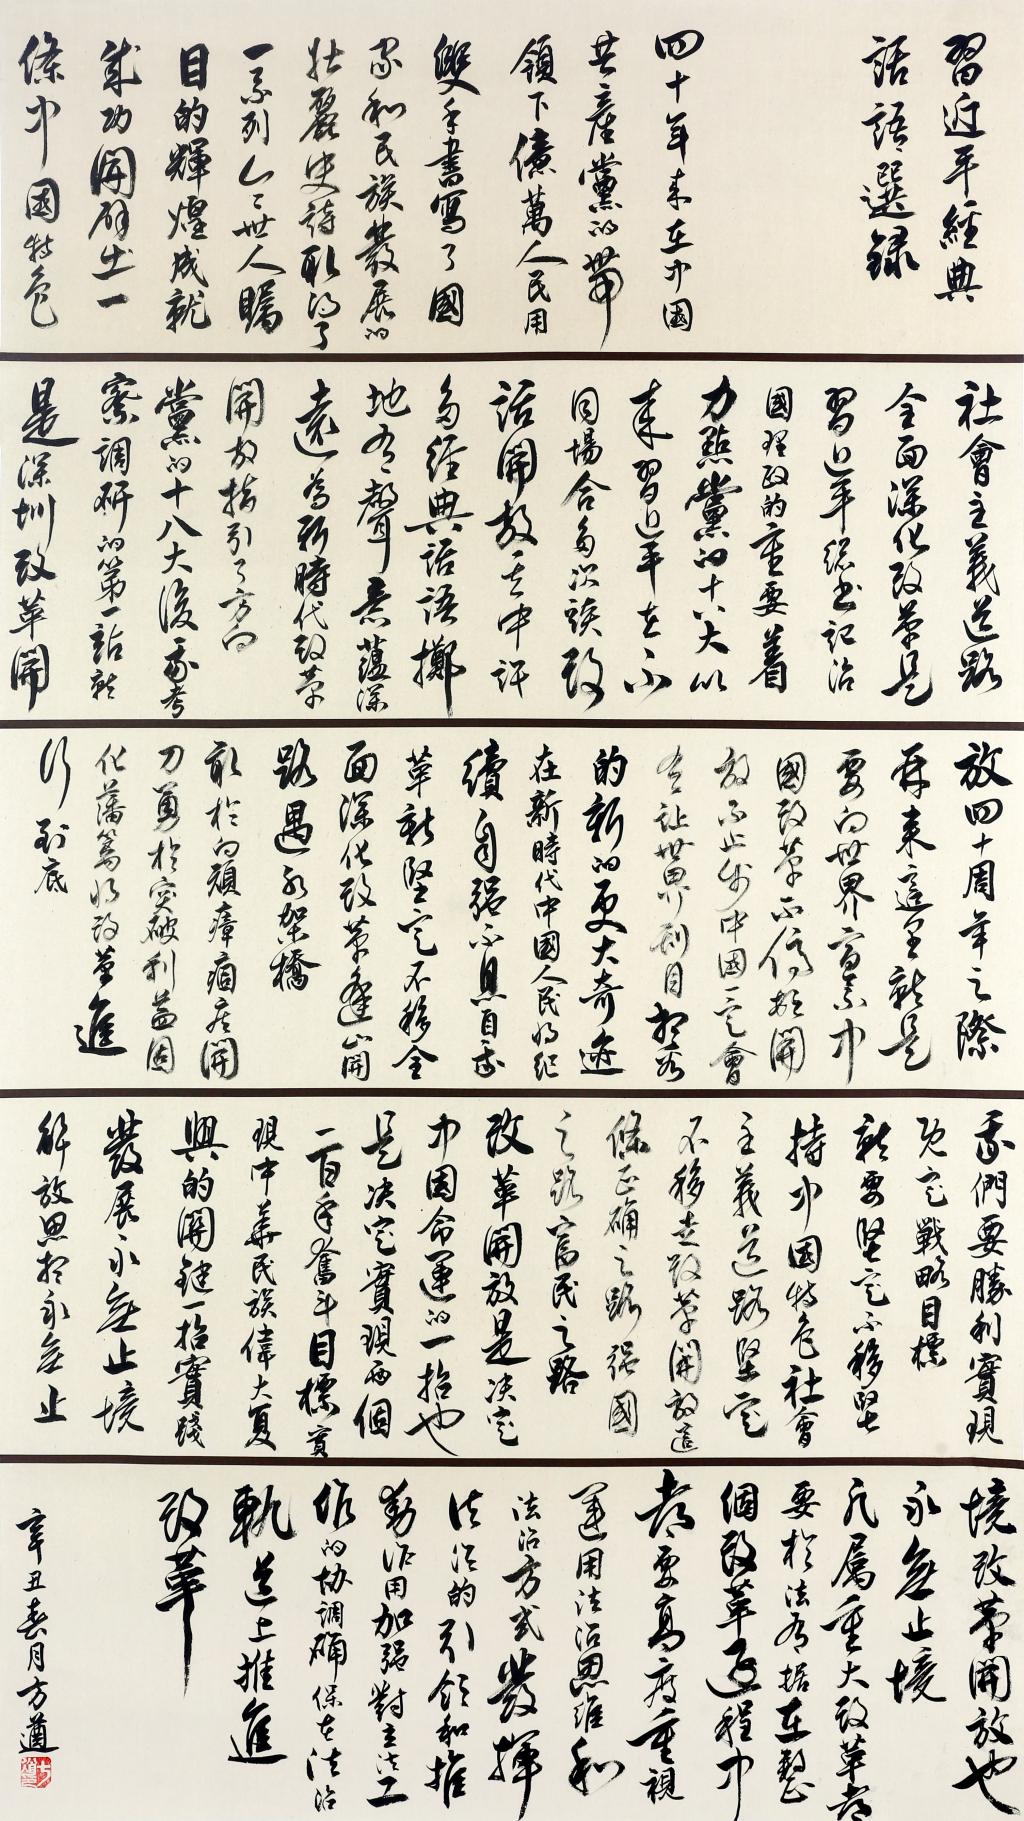 習近平經典
話語選録
四十年来在中國
共產黨的带
領下億萬人民用
雙手書寫了國
家和民族發展的
壮麗史詩取得了
一系列令世人矚
目的輝煌成就
成功開辟出一
條中國特色
社會主義道路
全面深化改革是
習近平總書記治
國理政的重要着
力點黨的十八大以
来習近平在不
同場合多次談改
話開放其中許
多經典話語擲
地有聲意蕴深
遠為新時代改革
開放指引了方向
黨的十八大後我考
察調研的第一站就
是深圳改革開
放四十周年之際
再来這里就是
要向世界宣示中
國改革不停頓開
放不止步中國一定會
有让世界刮目相看
的新的更大奇迹
在新時代中國人民将繼
續自强不息自我
革新堅定不移全
面深化改革逢山開
路遇水架橋
敢於向頑瘴痼疾開
刀勇於突破利益固
化藩篱将改革進
行到底
我們要勝利實現
既定戰略目標
就要堅定不移堅
持中國特色社會
主義道路堅定
不移走改革開放這
條正确之路强國
之路富民之路
改革開放是决定
中國命運的一招也
是决定實現两個
一百年奮斗目標實
現中華民族偉大复
興的關鍵一招實踐
發展永無止境
解放思想永無止
境改革開放也
永無止境
凡属重大改革都
要於法有据在整
個改革過程中
都要高度重視
運用法治思維和
法治方式發揮
法治的引領和推
動作用加强對立法工
作的协調确保在法治
軌道上推進
改革
辛丑春月方遒